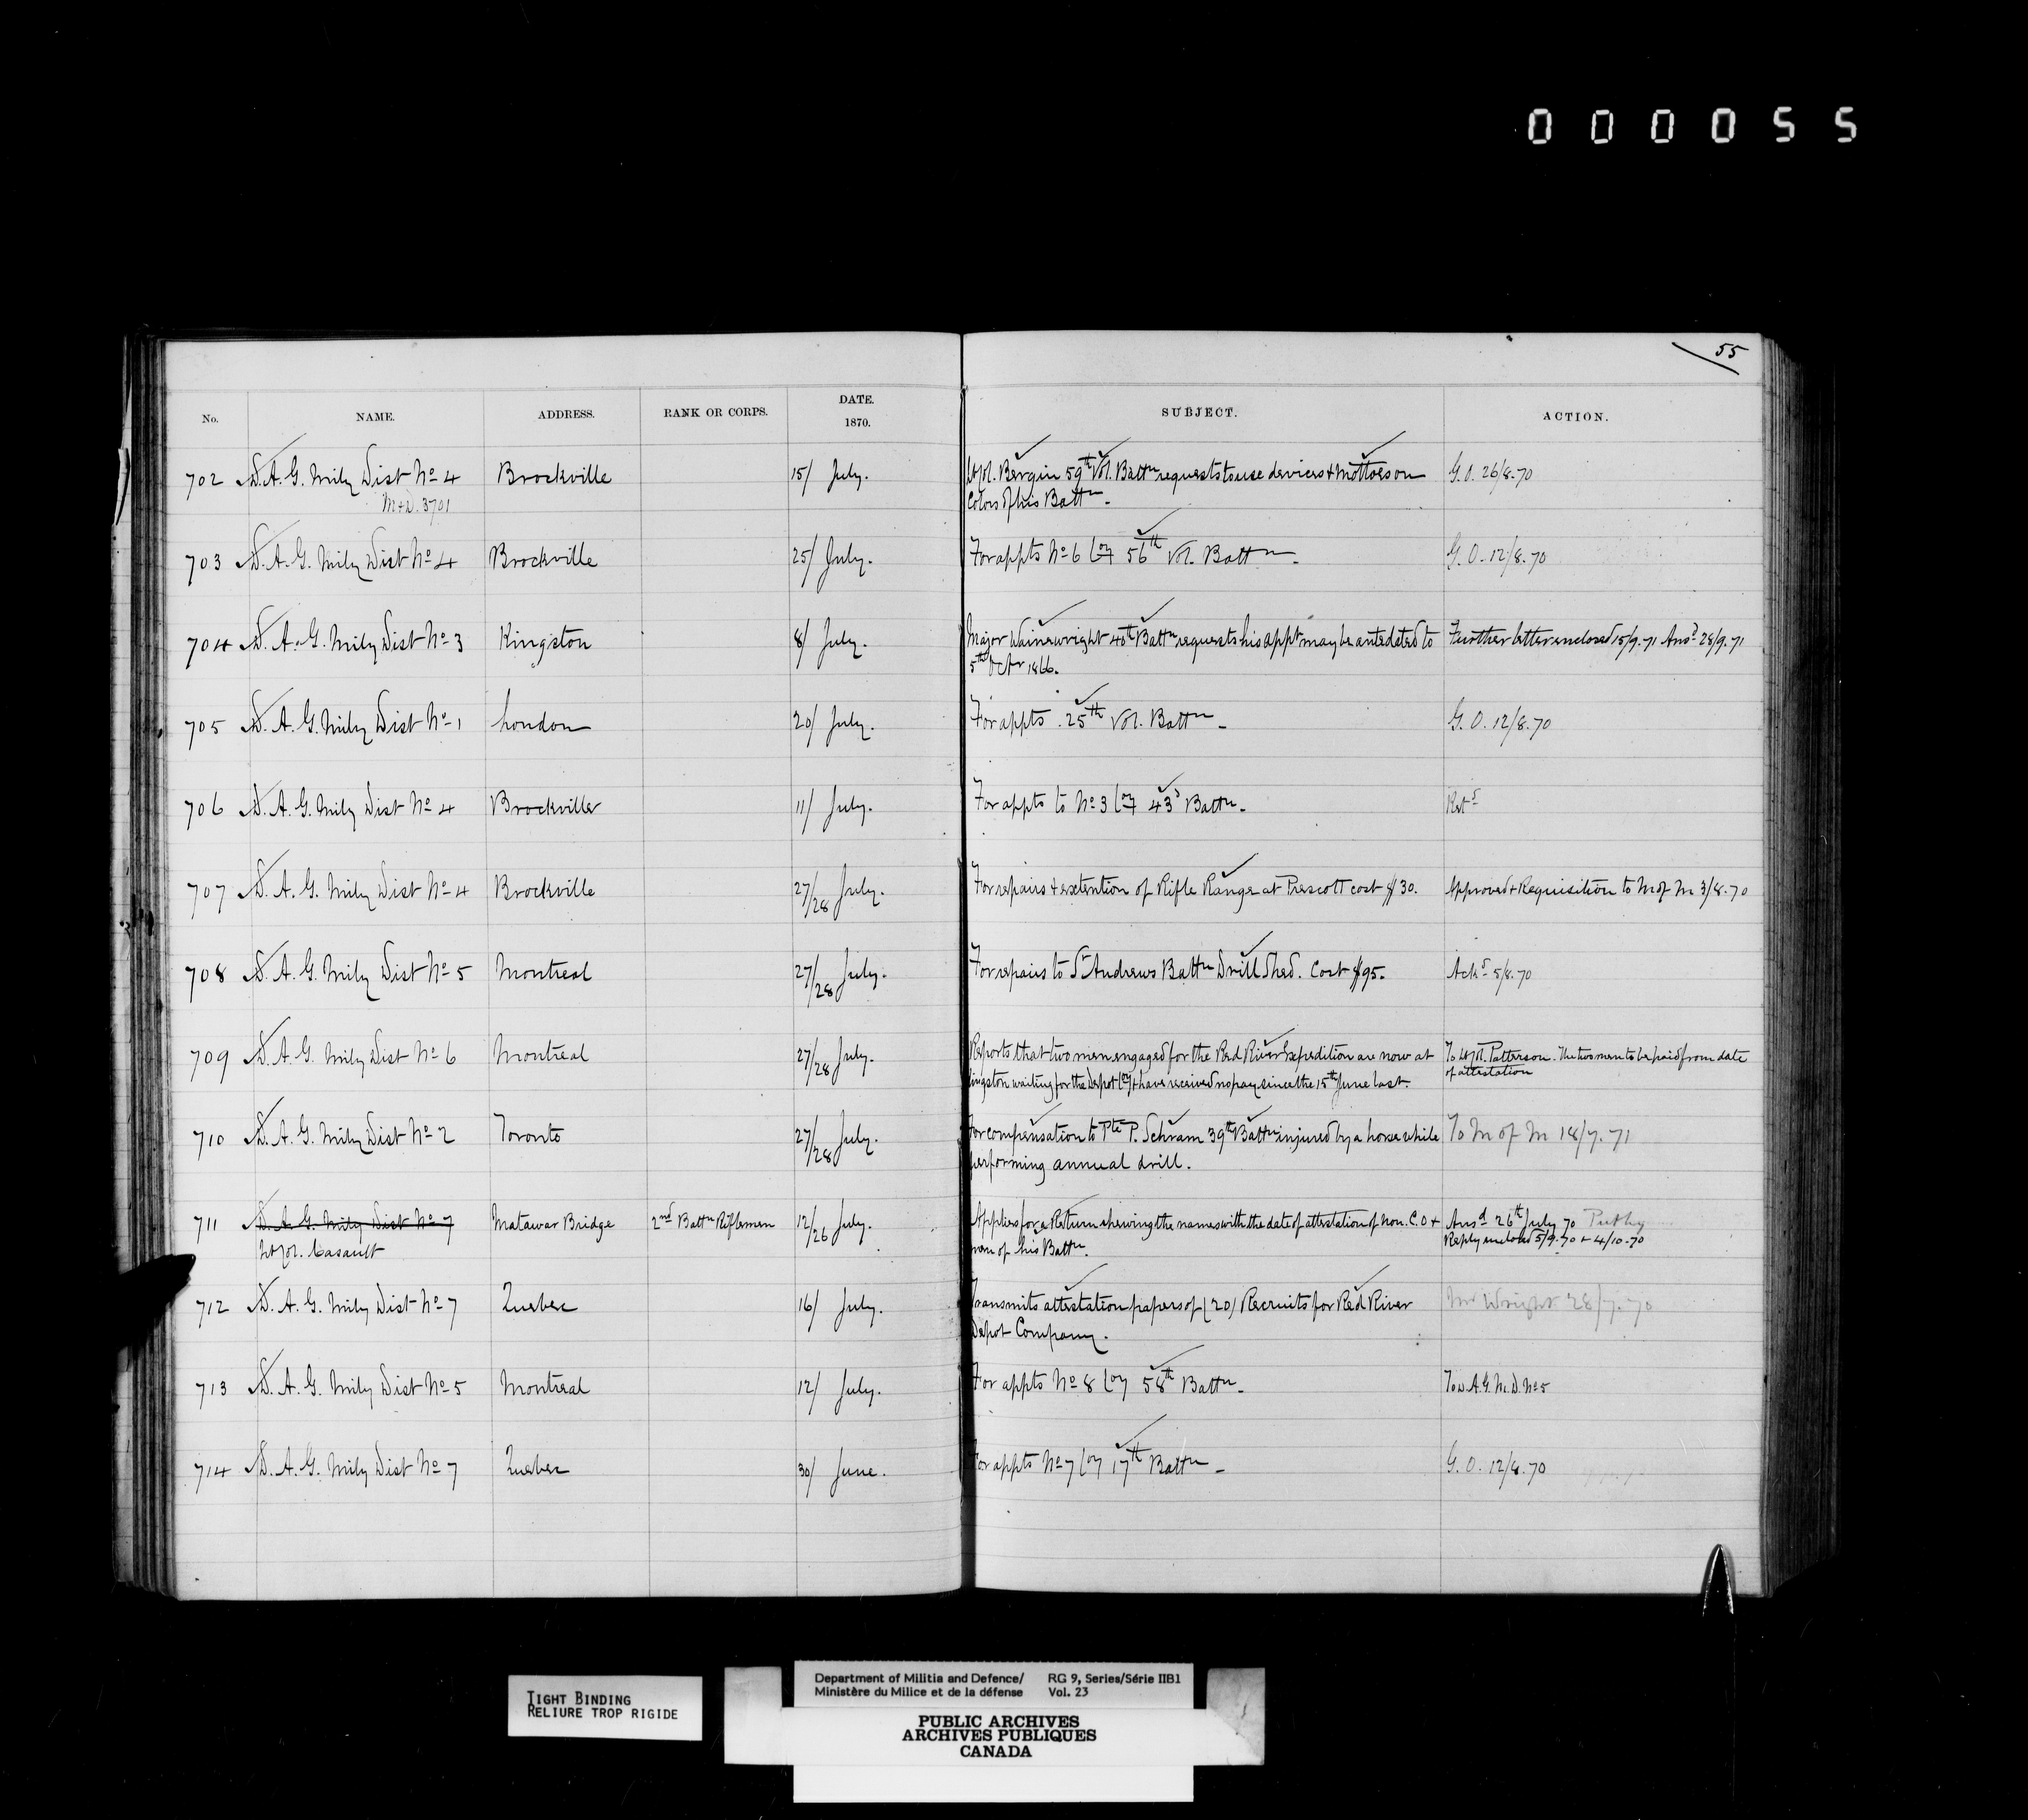 000055
55
No. NAME. ADDRESS. RANK OR CORPS. DATE. 1870. SUBJECT. ACTION.
702 D. A. G. Mily Dist No 4 Brockville 15/ July. Lt Col. Bergin 59th Vol. Battn requests to use devices & Mottoes on G. O. 26/8.70
M&D. 3701 Colors of his Battn.
703 D. A. G. Mily Dist No 4 Brockville 25/ July. For appts No 6 Coy 56th Vol. Battn. G. O. 12/8.70
704 D. A. G. Mily Dist No 3 Kingston 8/ July. Major Wainewright 40th Battn requests his appt may be antedated to Further letter enclosed 15/9.71 Ansd 28/9.71
5th Octr 1866.
705 D. A. G. Mily Dist No 1 London 20/ July. For appts 25th Vol. Battn G. O. 12/8.70
706 D. A. G. Mily Dist No 4 Brockville 11/ July. For appts to No 3 Coy 43d Battn. Retd
707 D. A. G. Mily Dist No 4 Brockville 27/28 July. For repairs & extention of Rifle Range at Prescott cost $30. Approved & Requisition to M of M 3/8.70
708 D. A. G. Mily Dist No 5 Montreal 27/28 July. For repairs to St Andrews Battn Drill Shed. Cost $95. Ackd 5/8.70
709 D. A. G. Mily Dist No 6 Montreal 27/28 July. Reports that two men engaged for the Red River Expedition are now at To Lt Col. Patterson. The two men to be paid from date
Kingston waiting for the Depot Coy & have received no pay since the 15th June last. of attestation
710 D. A. G. Mily Dist No 2 Toronto 27/28 July. For compensation to Pte P. Schram 39th Battn injured by a horse while To M of M 18/7.71
performing annual drill.
711 D. A. G. Mily Dist No 7 Matawar Bridge 2nd Battn Riflemen 12/26 July. Applies for a Return shewing the names with the date of attestation of Non. C. O & Ansd 26th July 70
Lt Col. Casault men of his Battn. Reply enclosed 5/9.70 & 4/10.70
712 D. A. G. Mily Dist No 7 Quebec 16/ July. Transmits attestation papers of (20) Recruits for Red River Mr Wright 28/7.70
Depot Company.
713 D. A. G. Mily Dist No 5 Montreal 12/ July. For appts No 8 Coy 58th Battn. To D. A. G. M. D. No 5
714 D. A. G. Mily Dist No 7 Quebec 30/ June. For appts No 7 Coy 17th Battn G. O. 12/8.70
TIGHT BINDING
RELIURE TROP RIGIDE
Department of Militia and Defence/ RG 9, Series/Série IIB1
Ministère du Milice et de la défense Vol. 23
PUBLIC ARCHIVES
ARCHIVES PUBLIQUES
CANADA